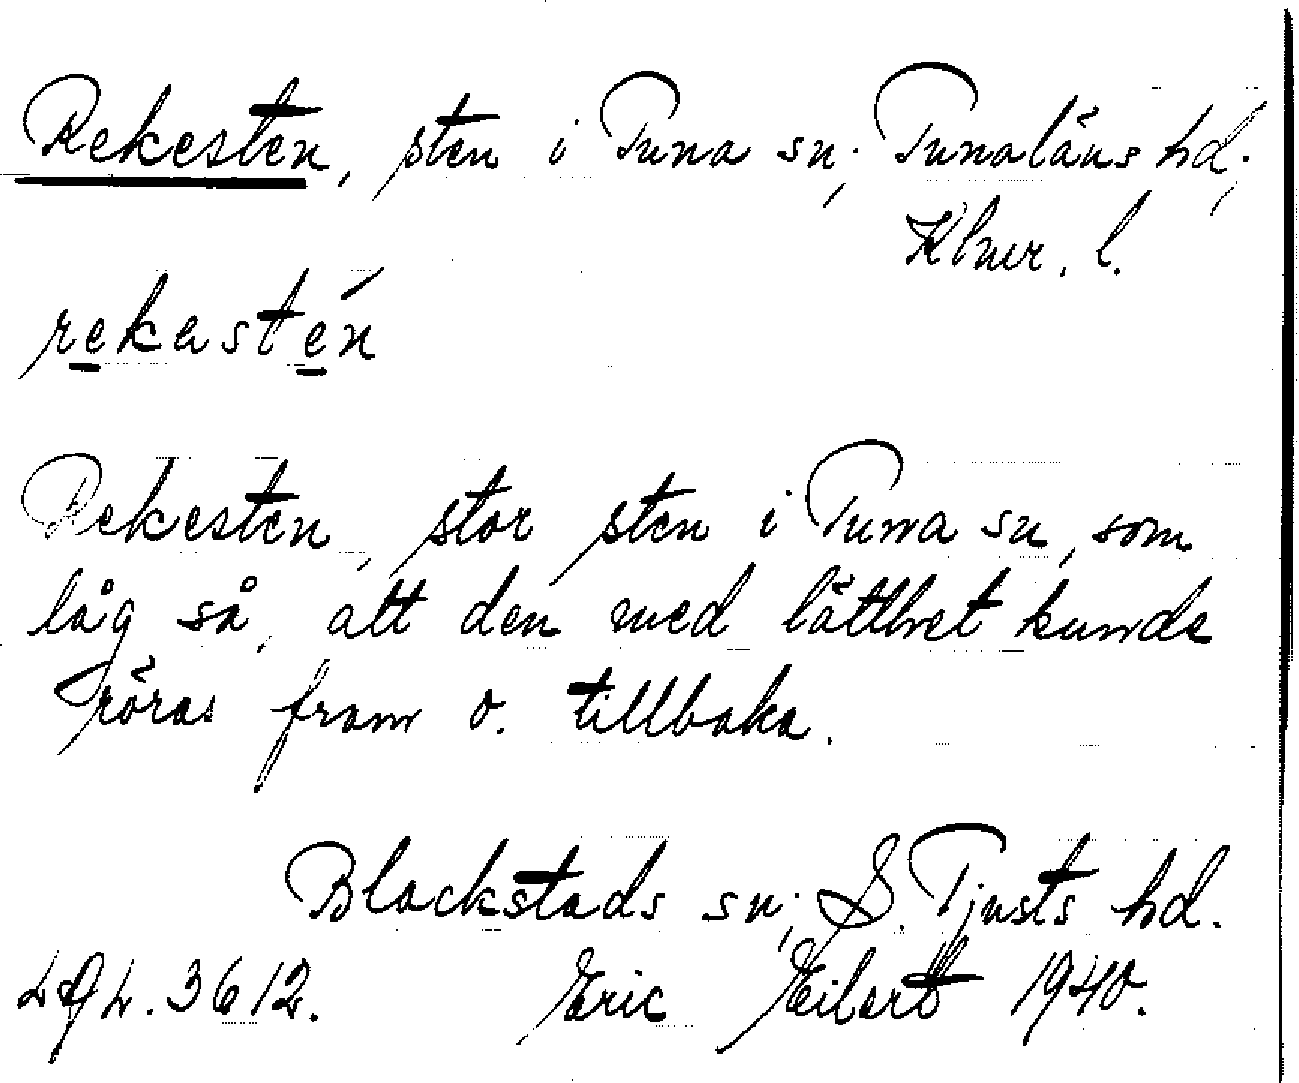 Rekesten, sten i Tuna sn., Tunaläns hd.,
Klmr. l.
rekastén
Rekesten, stor sten i Tuna sn, som
låg så, att den med lätthet kunde
röras fram o. tillbaka.
Blackstads sn., S. Tjusts hd.
3612. Eric Eilert 1940.